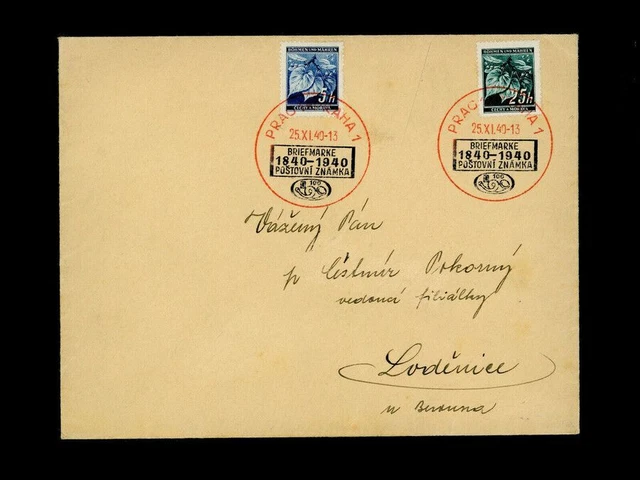 BÖHMEN UND MÄHREN
5h
ČECHY A MORAVA
BÖHMEN UND MÄHREN
25h
ČECHY A MORAVA
PRAG PRAHA 1
25.XI.40-13
BRIEFMARKE
1840-1940
POŠTOVNÍ ZNÁMKA
100
PRAG PRAHA 1
25.XI.40-13
BRIEFMARKE
1840-1940
POŠTOVNÍ ZNÁMKA
100
Vážený Pán
p Čestmír Pokorný
filiálky
Loděnice
u Berouna